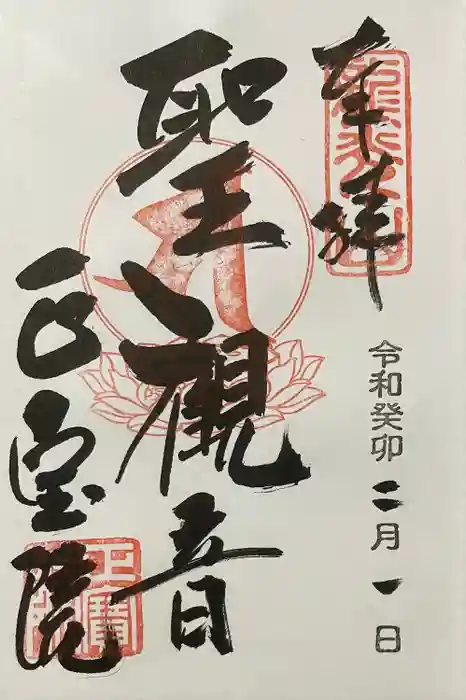 奉拝
令和癸卯二月一日
聖観音
正宝院